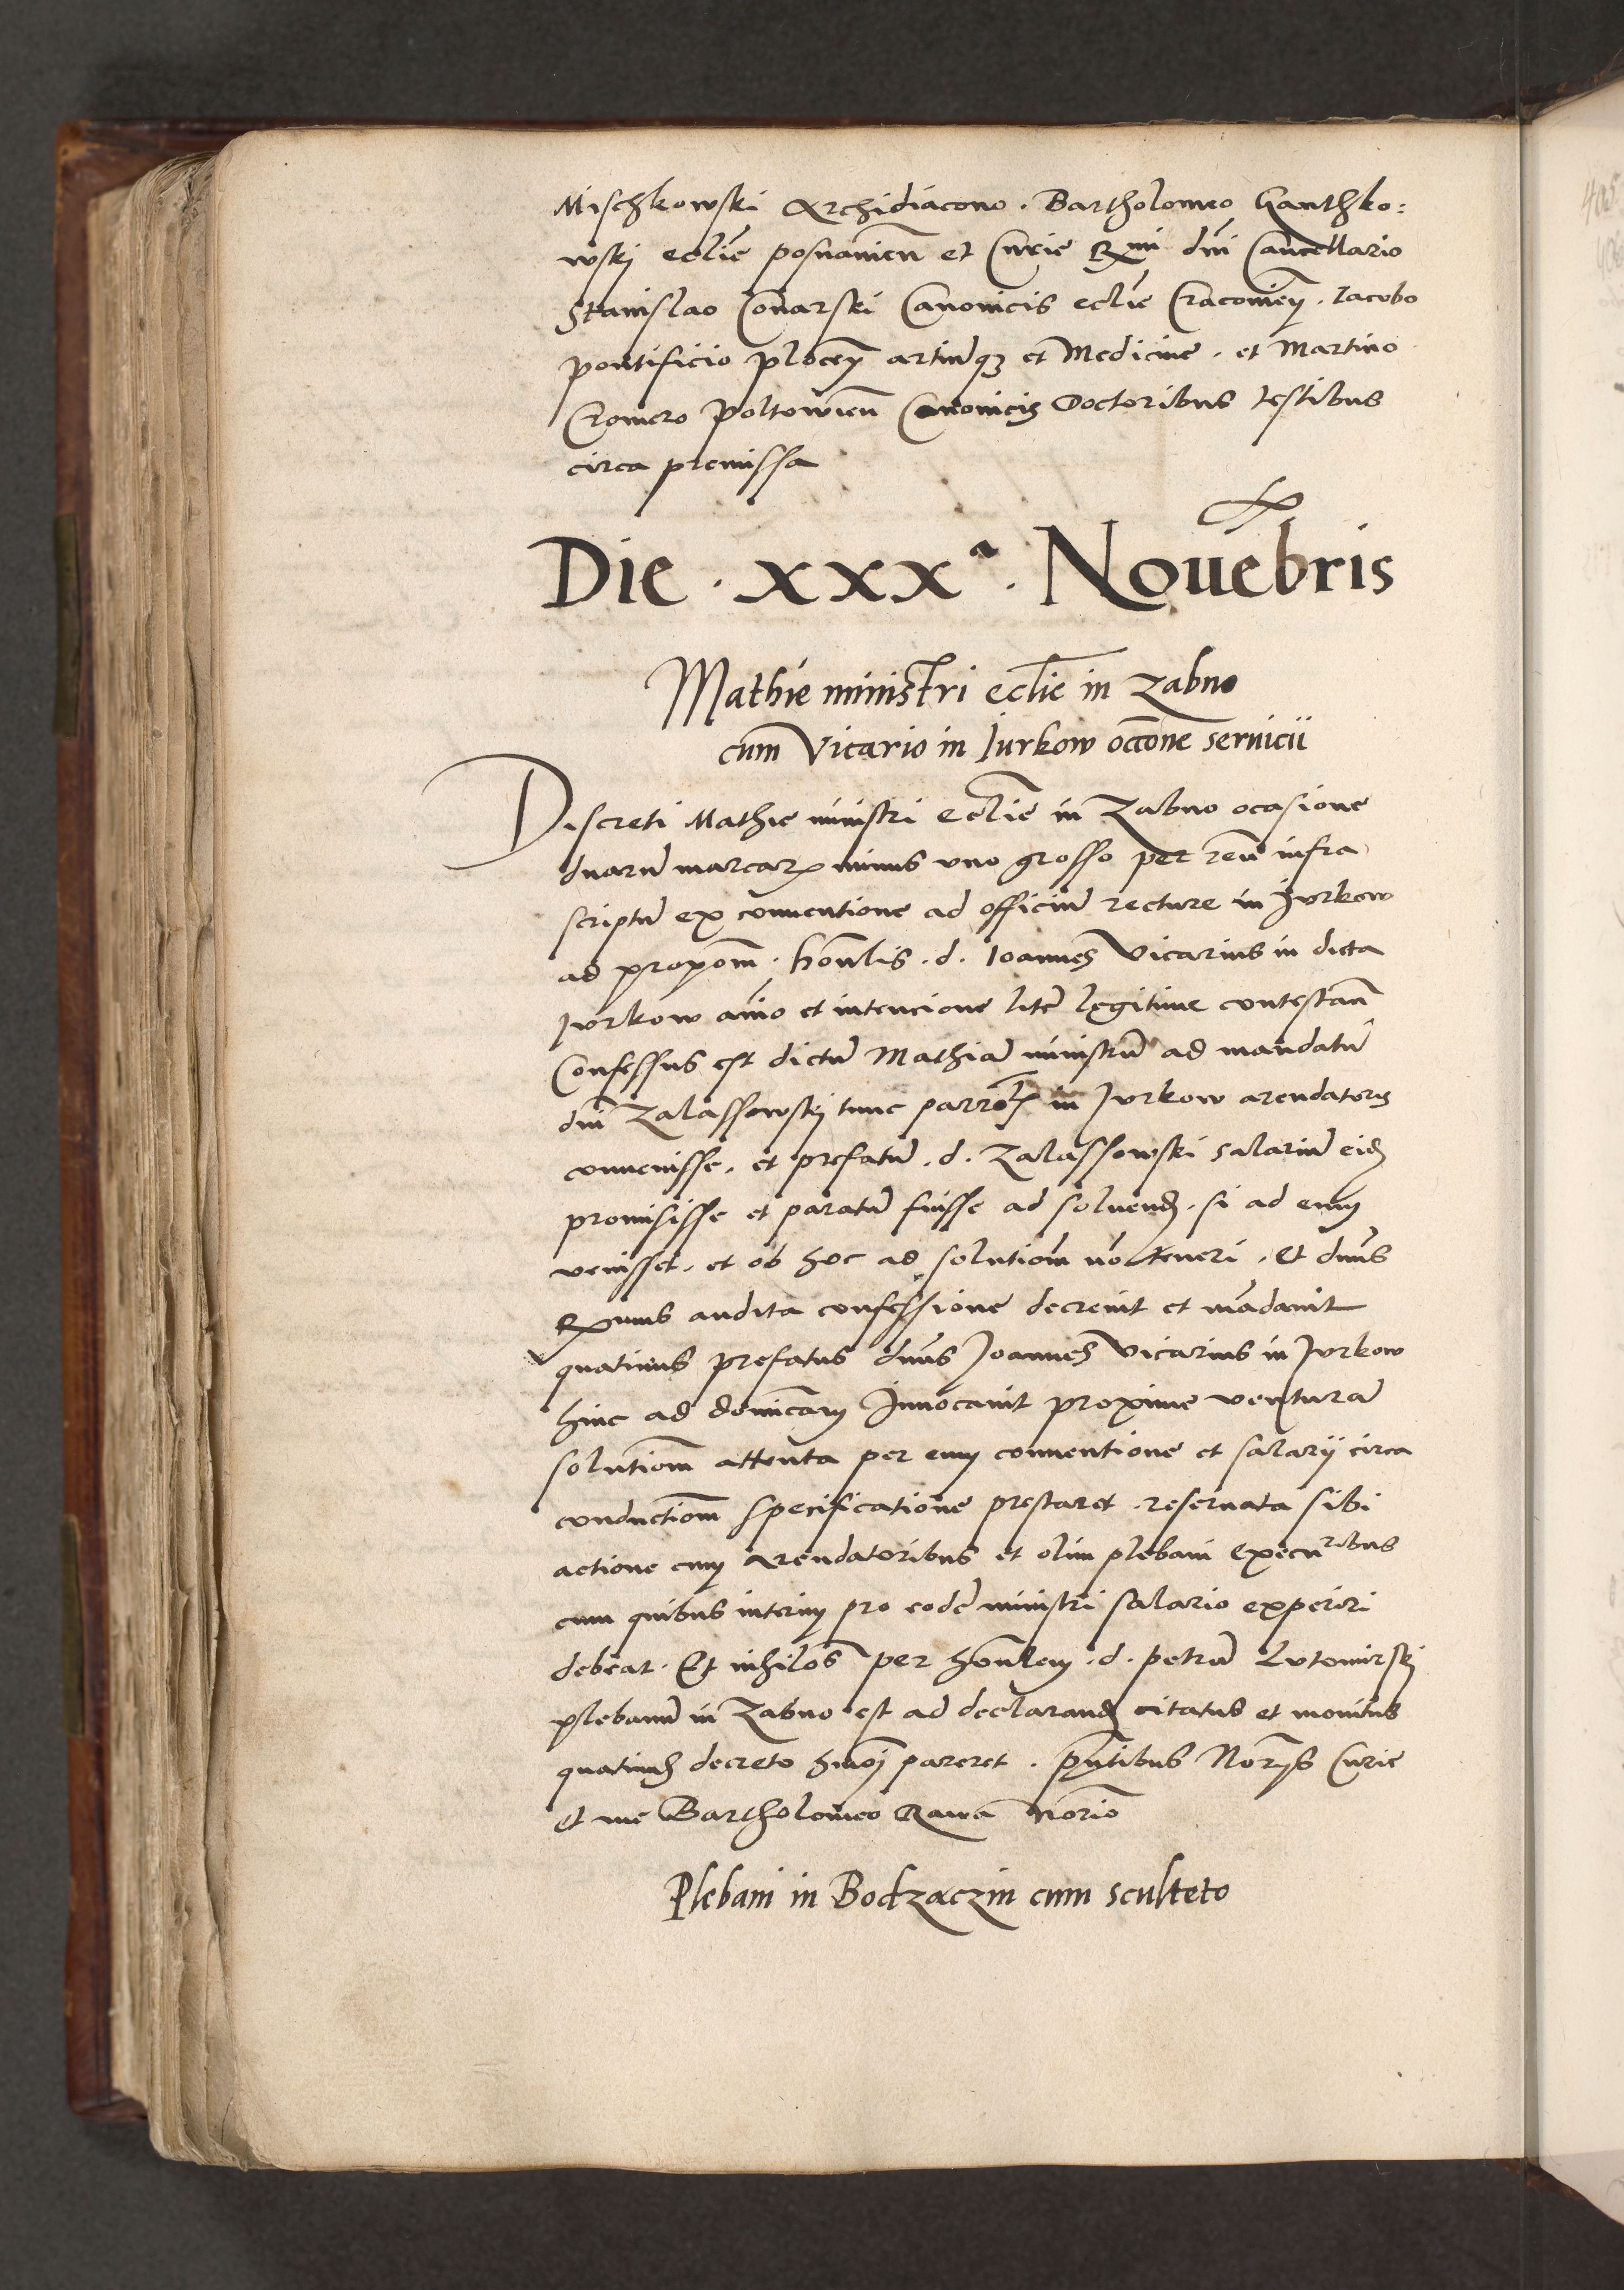 Mischkowski Archidiacono . Bartholomeo Ganthko:
wskj ecclie posnanien et Curie Rmi dni Cancellario
Stanislao Conarski Canonicis eclie Cracovien . Iacobo
pontificio plocen artiumq3 et Medicine . et Martino
Cromero poltowien Canonicis Doctoribus testibus
circa premissa
Die . xxxª . Nouēbris
Mathie ministri eclie in Zabno
cum Vicario in Jurkow occone seruicii
Discreti Mathie ministri Eclie in Zabno ocasione
duarū marcarꝝ minus vno grosso per reū infra
scriptū ex conuentione ad officiū recture in Jvrkow
ad propom . honlis . d . Ioannes Vicarius in dicta
Jvrkow aīo et intencione litē legitime contestan
Confessus est dictū Mathiā ministrū ad mandatū
dni Zalassowskj tunc in Jvrkow arendatoris
conuenisse . et prefatū . d . Zalassowski salariū eid
promisisse et paratū fuisse ad soluend . si ad eum
venisset . et ob hoc ad solutiom nō teneri . Et dnus
Rmus audita confessione decreuit et mādauit
quatinus prefatus dnus Joannes Vicarius in Jvrkow
hinc ad dominicam Inuocauit proxime venturā
solutiom attenta per eum conuentione et salarij circa
conductiom specificatione prestaret . reseruata sibi
actione cum arendatoribus et olim plebani executribus
cum quibus interim pro eodē ministri salario experiri
debeat . Et nihilos per honlem . d . petrū Lvtomirskj
plebanū in Zabno est ad declarand citatus et monitus
quatinus decreto hmoi pareret . pntibus Norijs Curie
et me Bartholomeo Rawa Norio
Plebani in Bodzaczin cum sculteto